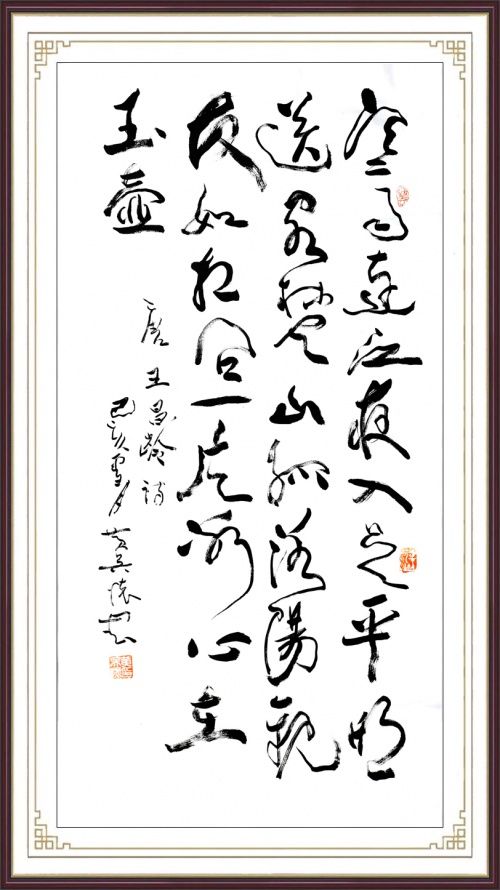 寒雨連江夜入吴平明
送客楚山孤洛陽親
友如相问一片冰心在
玉壶
唐王昌齡詩
己亥雪月